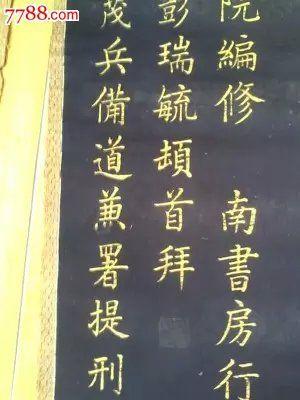 7788.com
院編修 南書房行
彭瑞毓頓首拜
茂兵備道兼署提刑